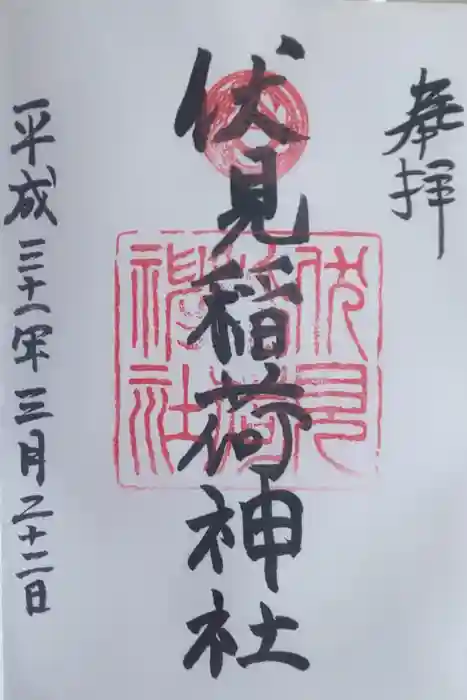 奉拝
伏見稲荷神社
伏見稲荷神社
平成三十一年三月二十二日